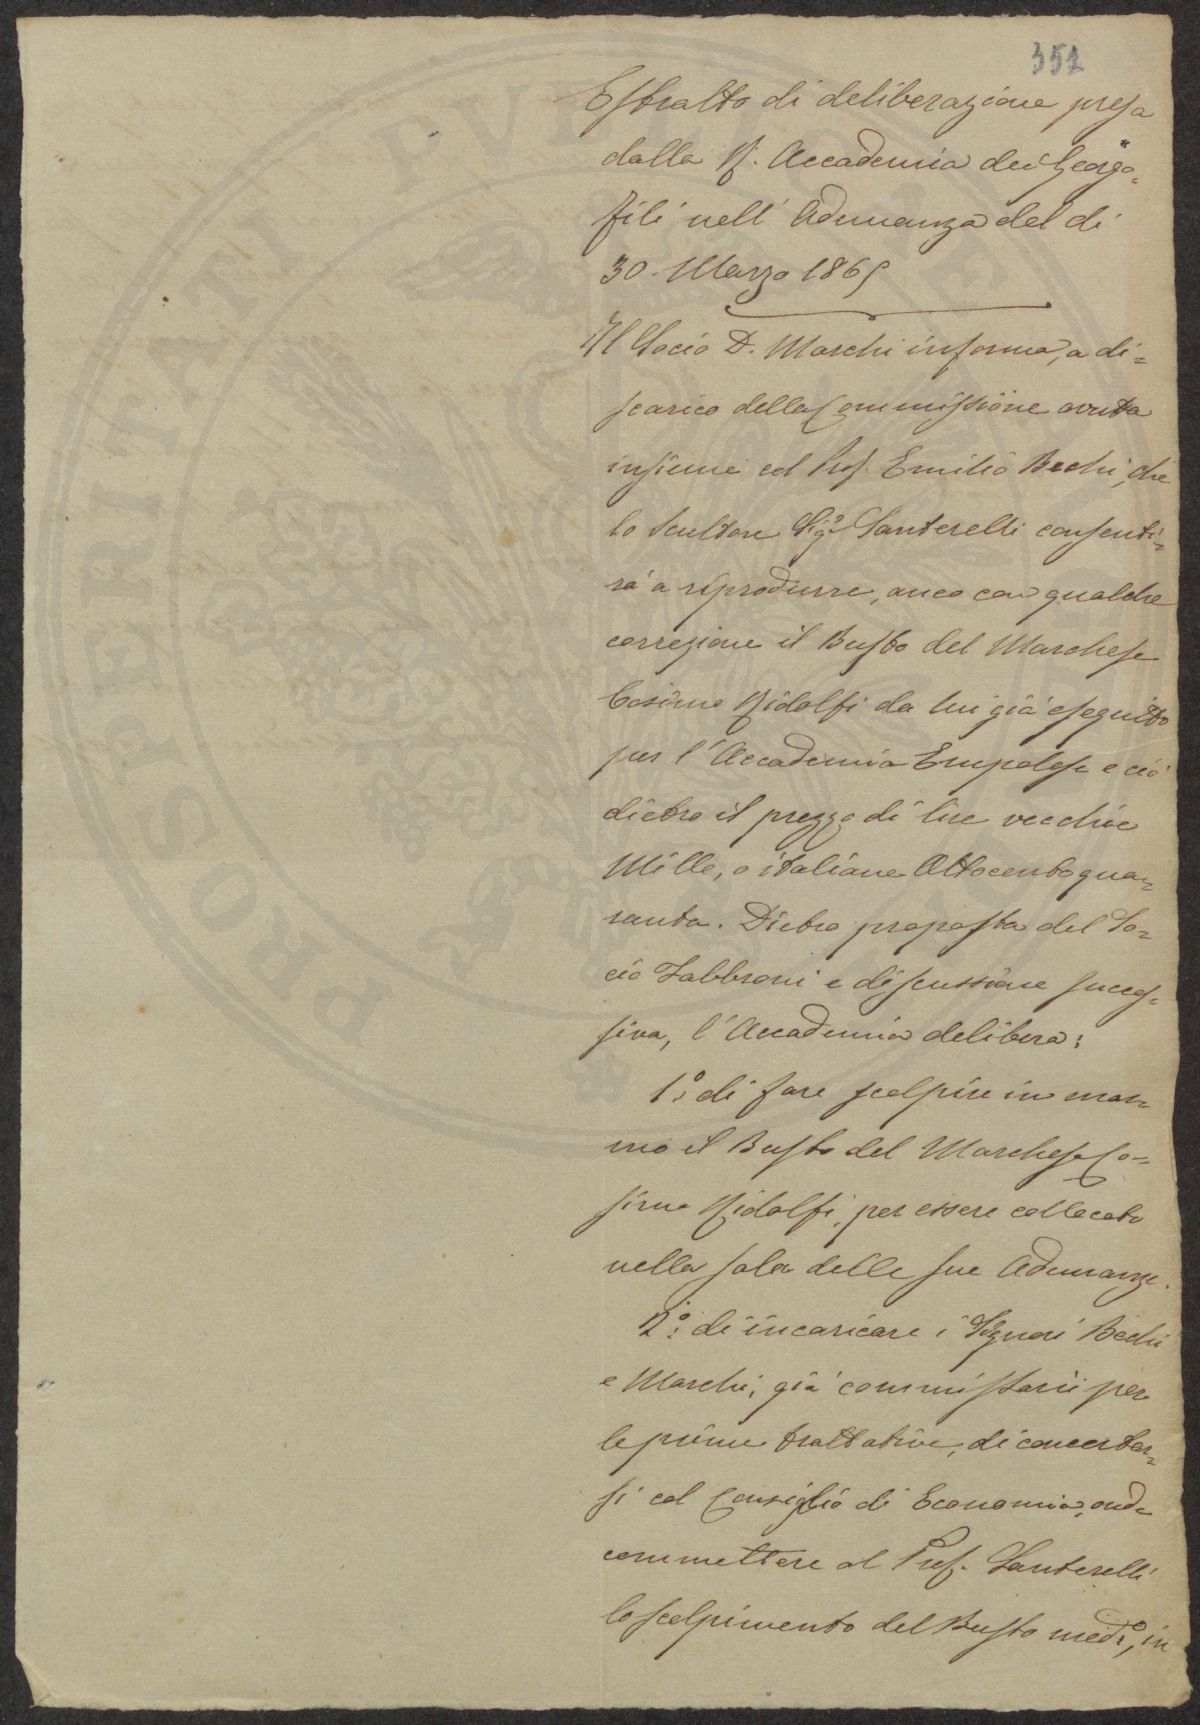 351
Estratto di deliberazione presa
dalla R. Accademia dei Georgo-
fili nell' Adunanza del di
30. Marzo 1865
Il Socio D. Marchi informa, a di-
scarico della Commissione avuta
insieme col Prof. Emilio Bechi, che
lo Scultore Sig.e Santerelli consenti-
rà a riprodurre, anco con qualche
correzione il Busto del Marchese
Cosimo Ridolfi da lui già eseguito
per l'Accademia Empolese e ciò
dietro il prezzo di lire vecchie
Mille, o italiane Ottocentoqua-
ranta. Dietro proposta del So-
cio Fabbroni e discussione succes-
siva, l'Accademia delibera:
1.° di fare scolpire in mar-
mo il Busto del Marchese Co-
simo Ridolfi, per essere collocato
nella sala delle sue Adunanze.
2.° di incaricare i Signori Bechi
e Marchi, già commissarii per
le prime trattative, di concertar-
si col Consiglio di Economia, onde
commettere al Prof. Santerelli
lo scolpimento del Busto med.o, in
PROSPERITATI PVBLICAE